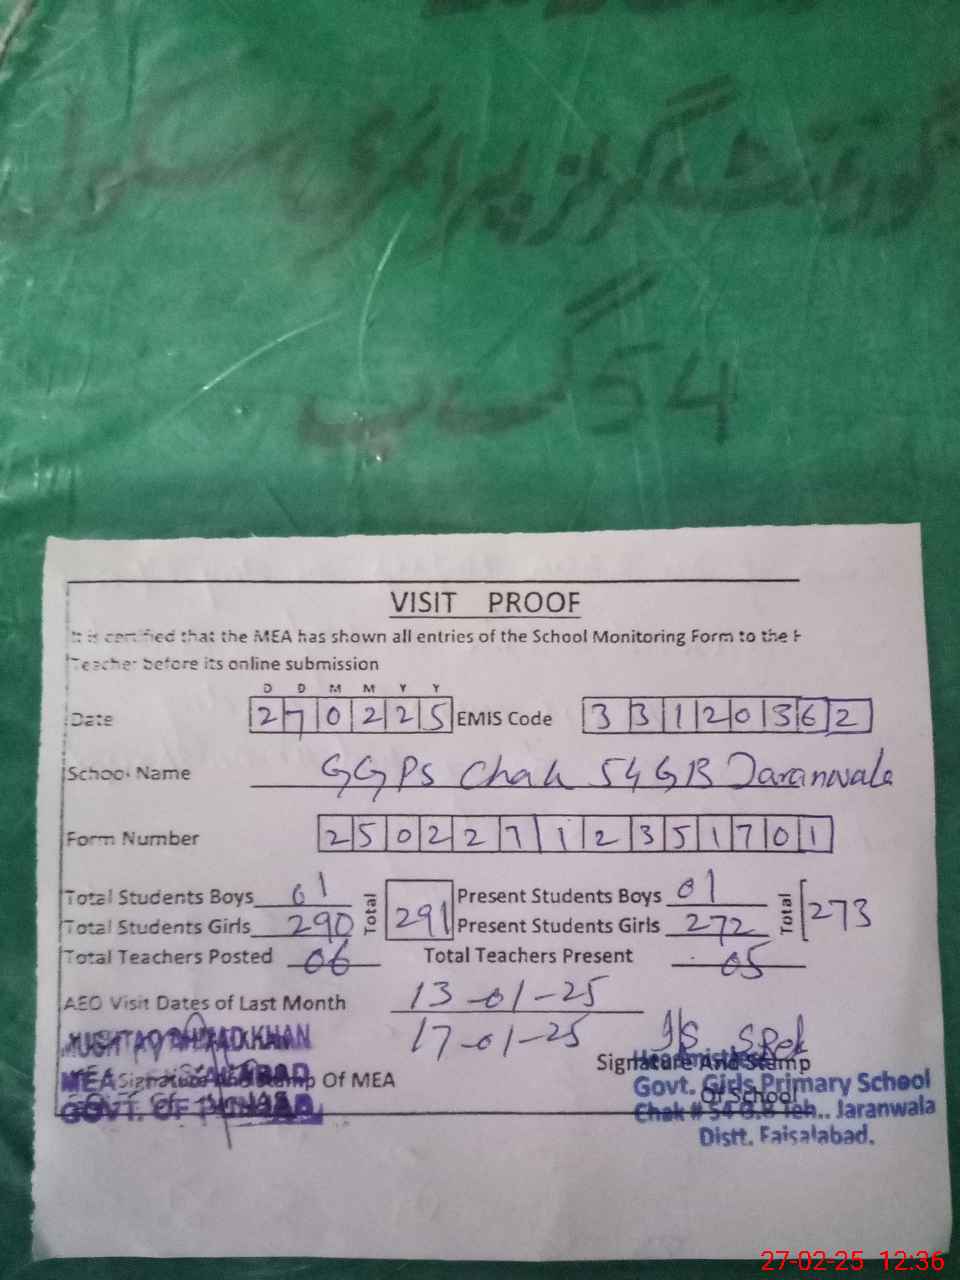 گورنمنٹ گرلز پرائمری سکول
54 گ ب
VISIT PROOF
It is certified that the MEA has shown all entries of the School Monitoring Form to the H
Teacher before its online submission
D D M M Y Y
Date 270225 EMIS Code 33120362
School Name GGPS Chak 54 GB Jaranwala
Form Number 25022712351701
Total Students Boys 01 Total 291 Present Students Boys 01 Total 273
Total Students Girls 290 Present Students Girls 272
Total Teachers Posted 06 Total Teachers Present 05
AEO Visit Dates of Last Month 13-01-25
17-01-25
MUSHTAQ AHMAD KHAN
Signature And Stamp
MEA FAISALABAD
Signature And Stamp Of MEA
Headmistress
Govt. Girls Primary School
Of School
GOVT. OF PUNJAB
Chak # 54 G.B Teh.. Jaranwala
Distt. Faisalabad.
27-02-25 12:36